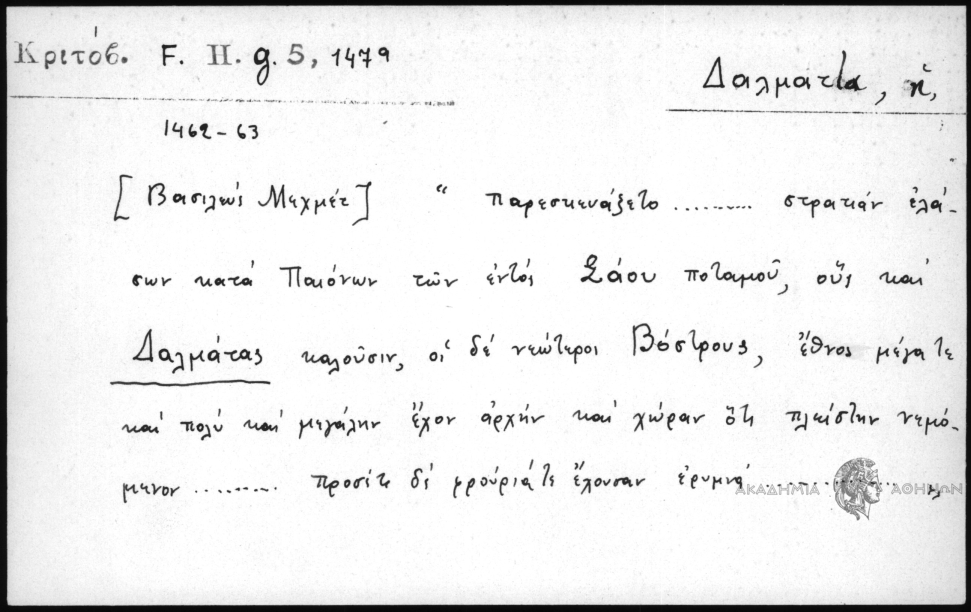 Κριτόβ. F. H. g. 5, 147α
Δαλματία, ἡ,
1462-63
[Βασιλεύς Μεχμέτ] “ παρεσκευάζετο ......... στρατιάν ἐλά-
σων κατά Παιόνων τῶν ἐντός Σάου ποταμοῦ, οὕς καί
Δαλμάτας καλοῦσιν, οἱ δέ νεώτεροι Βόστρους, ἔθνος μέγα τε
καί πολύ καί μεγάλην ἔχον ἀρχήν καί χώραν ὅτι πλείστην νεμό-
μενον ......... προσέτι δέ φρούριά τε ἔχουσαν ἐρυμνά ......... „
ΑΚΑΔΗΜΙΑ ΑΘΗΝΩΝ